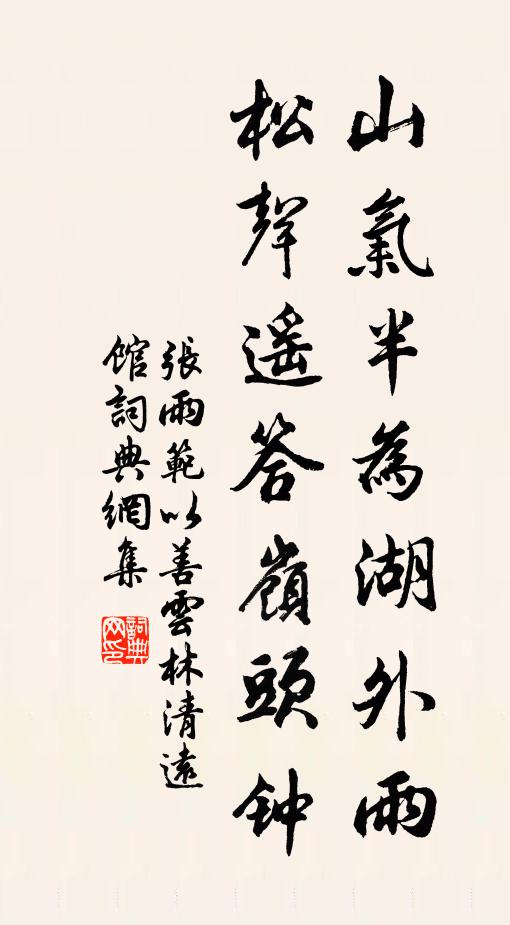 山氣半為湖外雨
松聲遥答嶺頭钟
張雨範以善雲林清遠
館詞典網集
詞典
网印